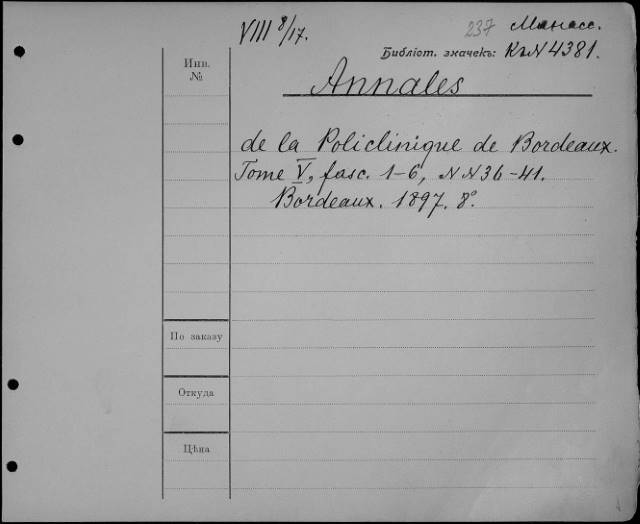 VIII 8/17.
237 Манасс.
Библіот. значекъ: КъN 4381.
Инв.
№
Annales
de la Policlinique de Bordeaux.
Tome V, fasc. 1-6, NN 36-41.
Bordeaux. 1897. 8°.
По заказу
Откуда
Цѣна